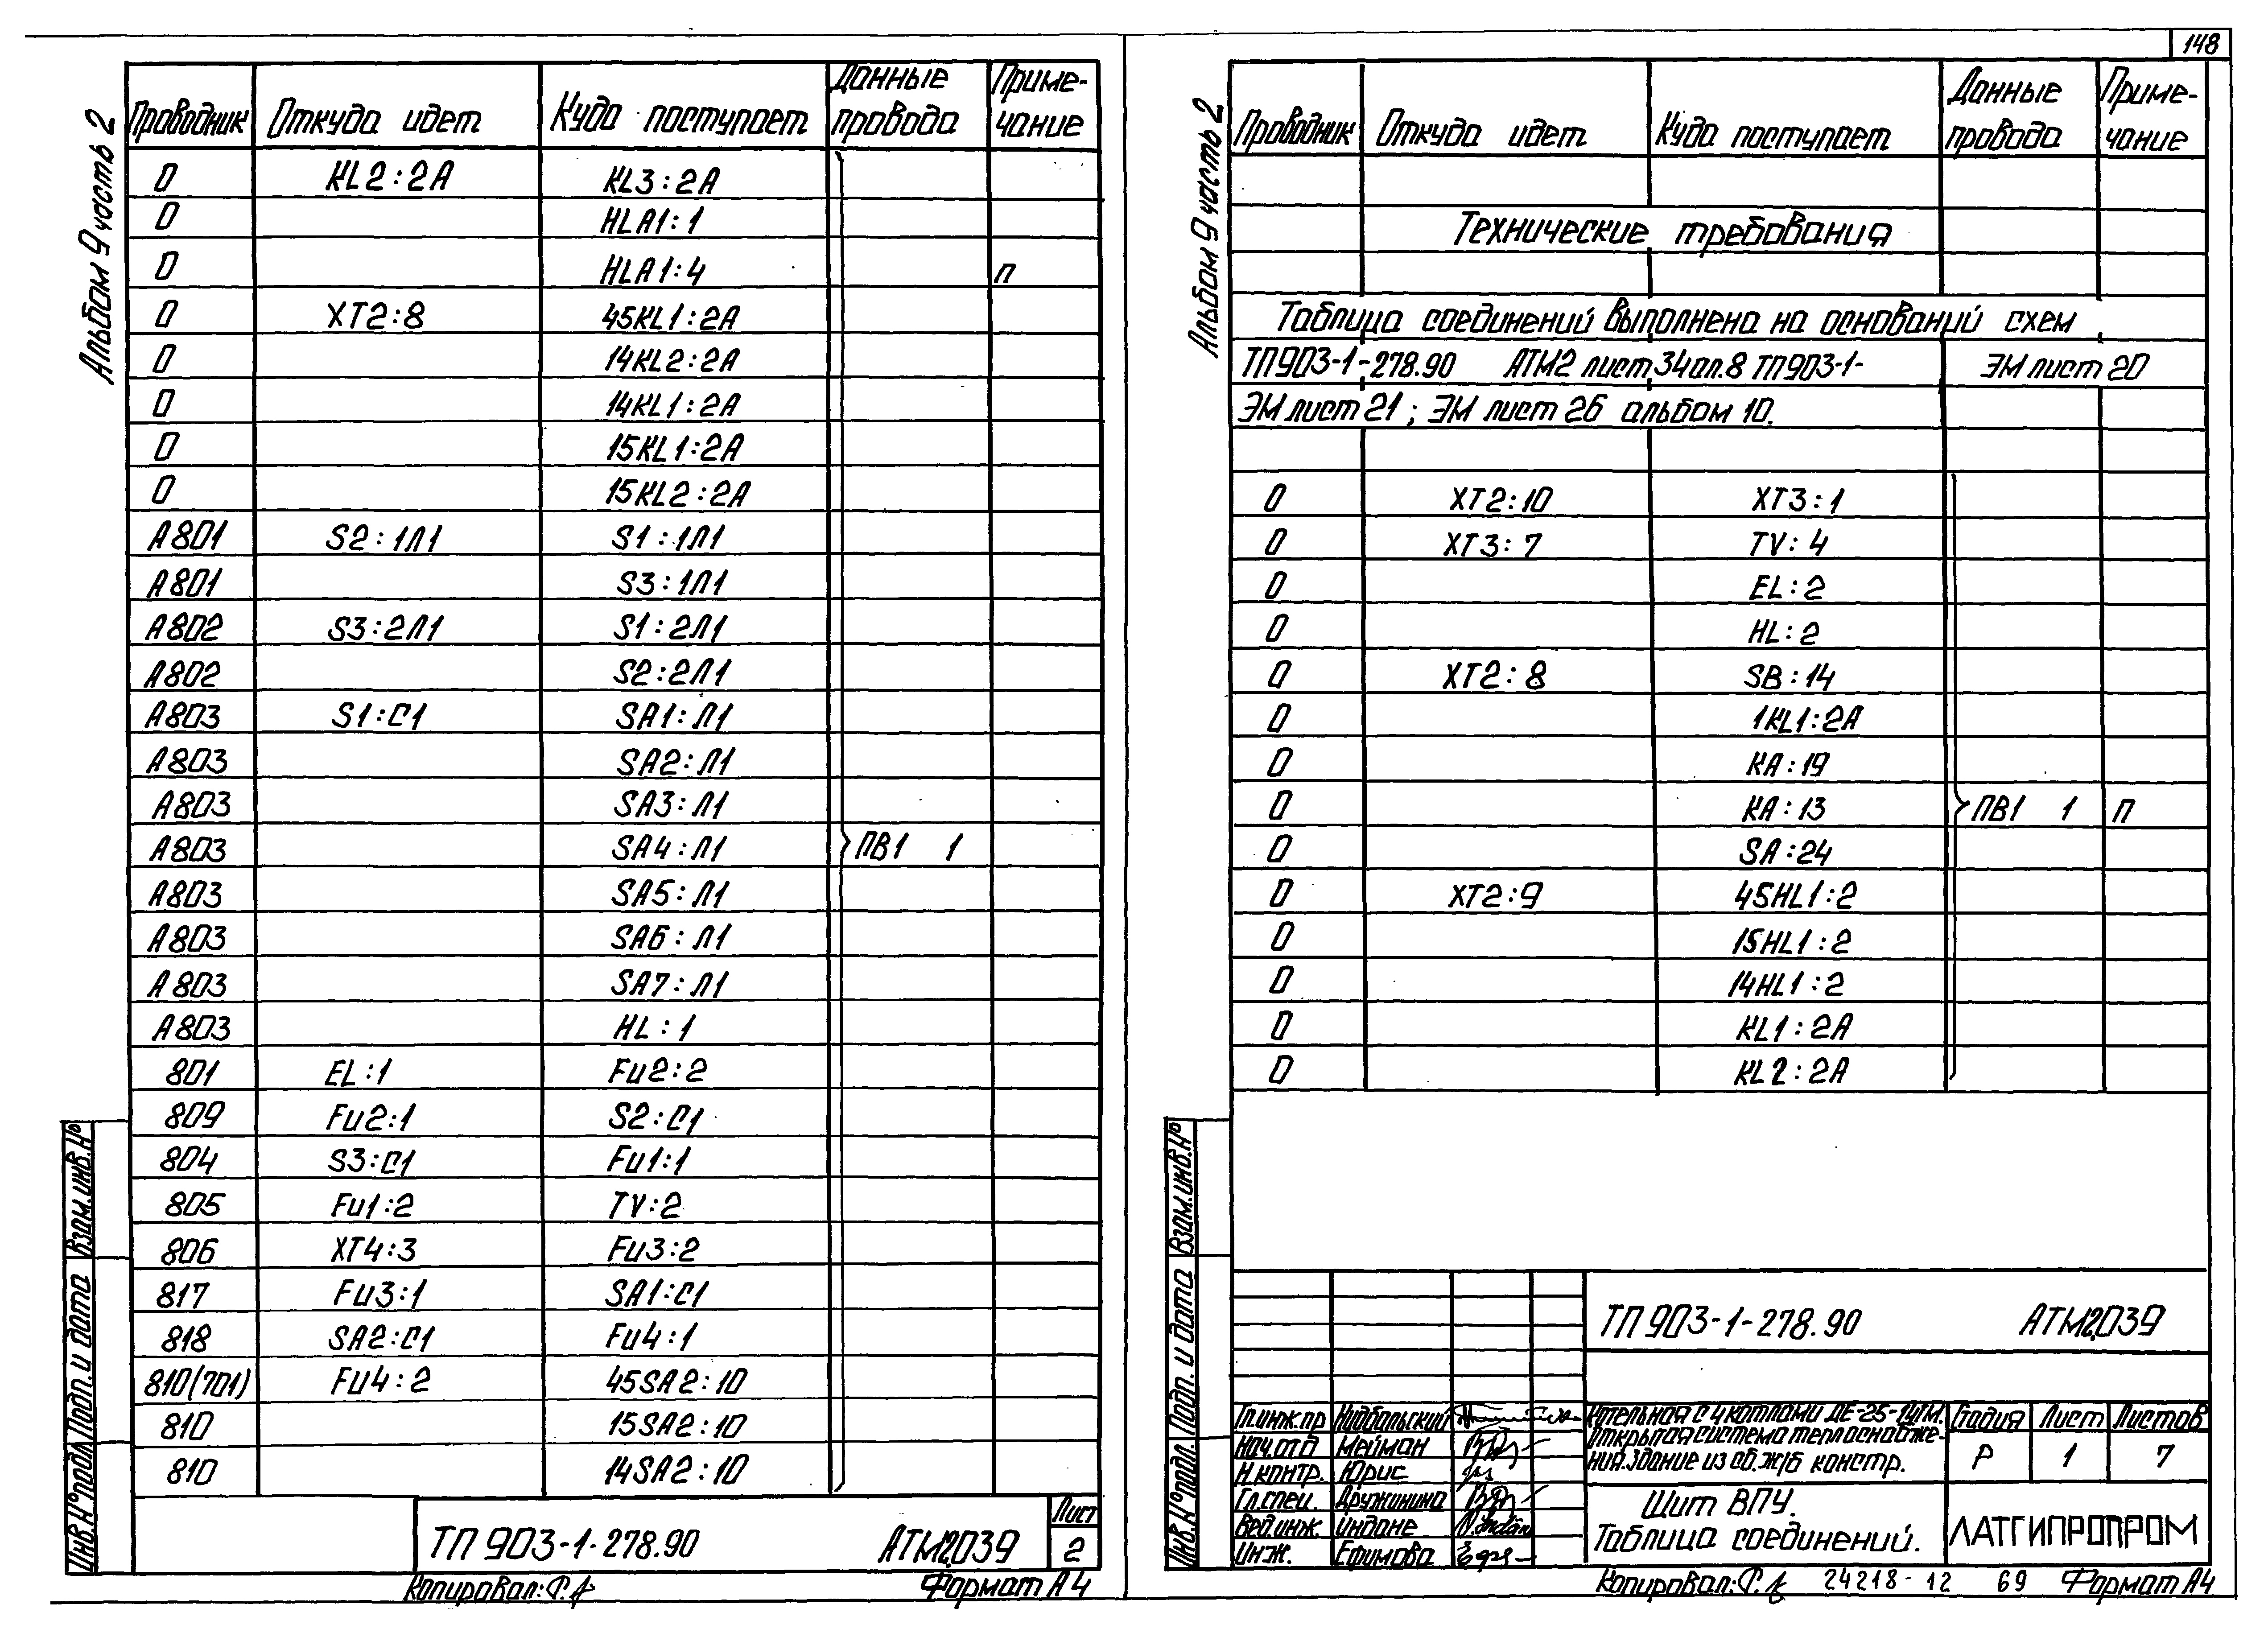 148
Альбом 9 часть 2
Проводник Откуда идет Куда поступает Данные провода Приме-чание
0 KL2:2A KL3:2A
0 HLA1:1
0 HLA1:4 п
0 XT2:8 45KL1:2A
0 14KL2:2A
0 14KL1:2A
0 15KL1:2A
0 15KL2:2A
A801 S2:1Л1 S1:1Л1
A801 S3:1Л1
A802 S3:2Л1 S1:2Л1
A802 S2:2Л1
A803 S1:C1 SA1:Л1
A803 SA2:Л1
A803 SA3:Л1
A803 SA4:Л1 ПВ1 1
A803 SA5:Л1
A803 SA6:Л1
A803 SA7:Л1
A803 HL:1
801 EL:1 Fu2:2
809 Fu2:1 S2:C1
804 S3:C1 Fu1:1
805 Fu1:2 TV:2
806 XT4:3 Fu3:2
817 Fu3:1 SA1:C1
818 SA2:C1 Fu4:1
810(701) Fu4:2 45SA2:10
810 15SA2:10
810 14SA2:10
Взам.инв.№
Подп. и дата
Инв.№подл.
ТП 903-1-278.90 АТМ2.039 Лист 2
Копировал: Формат А4
Альбом 9 часть 2
Проводник Откуда идет Куда поступает Данные провода Приме-чание
Технические требования
Таблица соединений выполнена на оснований схем
ТП903-1-278.90 АТМ2 лист 34 ал.8 ТП903-1- ЭМ лист 20
ЭМ лист 21; ЭМ лист 26 альбом 10.
0 XT2:10 XT3:1
0 XT3:7 TV:4
0 EL:2
0 HL:2
0 XT2:8 SB:14
0 1KL1:2A
0 KA:19
0 KA:13 ПВ1 1 п
0 SA:24
0 XT2:9 45HL1:2
0 15HL1:2
0 14HL1:2
0 KL1:2A
0 KL2:2A
Взам.инв.№
Подп. и дата
Инв.№подл.
ТП 903-1-278.90 АТМ2.039
Гл.инж.пр Нидбальский
Нач.отд Мейман
Н.контр. Юрис
Гл.спец. Дружинина
Вед.инж. Индане
Инж. Ефимова
Котельная с 4 котлами ДЕ-25-14ГМ.
Открытая система теплоснабже-
ния.Здание из сб.ж/б констр.
Стадия Лист Листов
Р 1 7
Щит ВПУ.
Таблица соединений.
ЛАТГИПРОПРОМ
Копировал: 24218-12 69 Формат А4